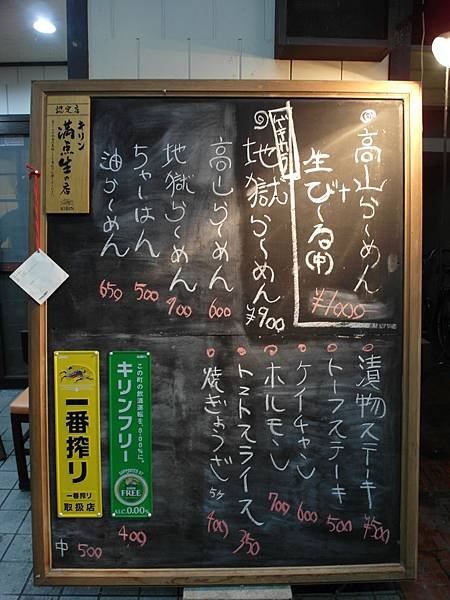 高山らーめん
+
生びーる(中)
¥1000
地獄らーめん ¥900
高山らーめん 600
地獄らーめん 700
ちゃーはん 500
油らーめん 650
漬物ステーキ ¥500
トーフステーキ 500
ケイチャン 600
ホルモン 700
トマトスライス 350
焼ぎょうざ 5ヶ 400
認定店
キリン
満点生の店
KIRIN
一番搾り
一番搾り
取扱店
中 500
この町の飲酒運転を、0.00%に。
キリンフリー
FREE
ALC.0.00%
400